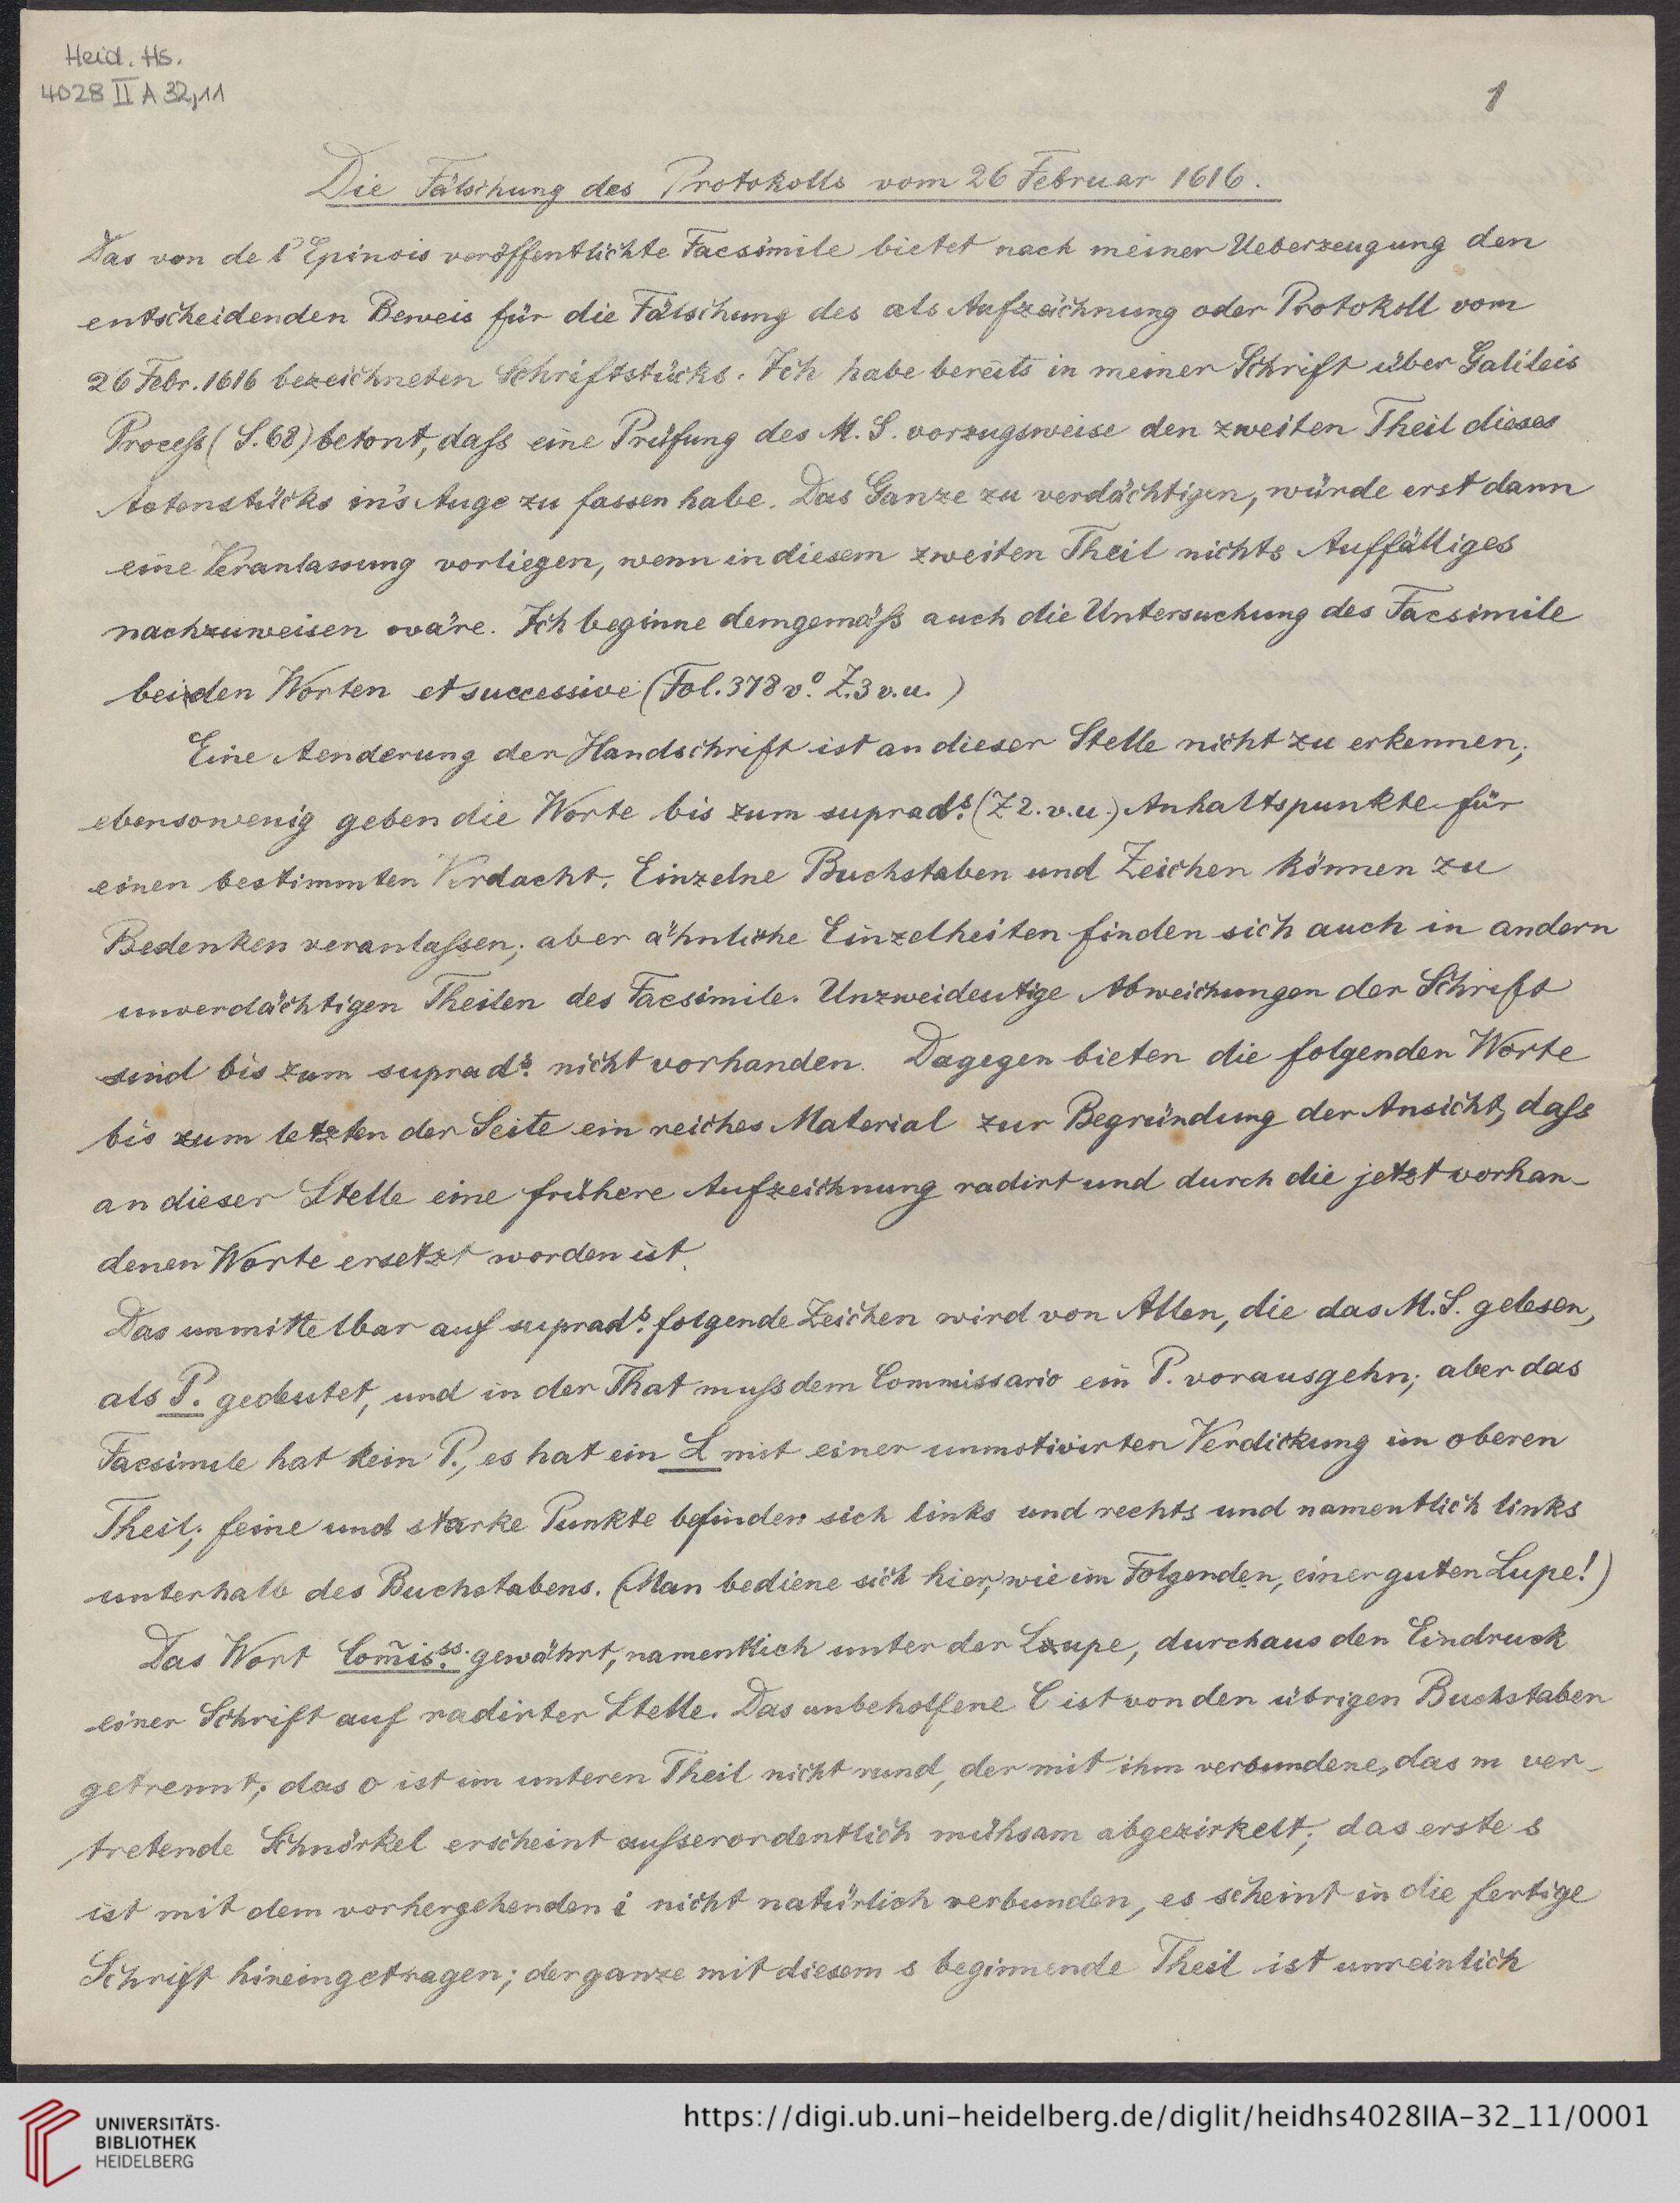 Heid. Hs.
4028 II A 32,11
1
Die Fälschung des Protokolls vom 26 Februar 1616.
Das von de l'Epinois veröffentlichte Facsimile bietet nach meiner Ueberzeugung den
entscheidenden Beweis für die Fälschung des als Aufzeichnung oder Protokoll vom
26 Febr. 1616 bezeichneten Schriftstücks. Ich habe bereits in meiner Schrift über Galileis
Proceß (S. 68) betont, daß eine Prüfung des M. S. vorzugsweise den zweiten Theil dieses
Actenstücks in's Auge zu fassen habe. Das Ganze zu verdächtigen, würde erst dann
eine Veranlassung vorliegen, wenn in diesem zweiten Theil nichts Auffälliges
nachzuweisen wäre. Ich beginne demgemäß auch die Untersuchung des Facsimile
bei den Worten et successive (Fol. 378 vº. Z. 3 v. u.)
Eine Aenderung der Handschrift ist an dieser Stelle nicht zu erkennen;
ebensowenig geben die Worte bis zum supradˢ. (Z 2. v. u.) Anhaltspunkte für
einen bestimmten Verdacht. Einzelne Buchstaben und Zeichen können zu
Bedenken veranlaßen; aber ähnliche Einzelheiten finden sich auch in andern
unverdächtigen Theilen des Facsimile. Unzweideutige Abweichungen der Schrift
sind bis zum supradˢ. nicht vorhanden. Dagegen bieten die folgenden Worte
bis zum letzten der Seite ein reiches Material zur Begründung der Ansicht, daß
an dieser Stelle eine frühere Aufzeichnung radirt und durch die jetzt vorhan-
denen Worte ersetzt worden ist.
Das unmittelbar auf supradˢ. folgende Zeichen wird von Allen, die das M. S. gelesen,
als P. gedeutet, und in der That muß dem Commissario ein P. vorausgehn; aber das
Facsimile hat kein P., es hat ein L mit einer unmotivirten Verdickung im oberen
Theil; feine und starke Punkte befinden sich links und rechts und namentlich links
unterhalb des Buchstabens. (Man bediene sich hier, wie im Folgenden, einer guten Lupe!)
Das Wort Com̃isˢˢ. gewährt, namentlich unter der Loupe, durchaus den Eindruck
einer Schrift auf radirter Stelle. Das unbeholfene C ist von den übrigen Buchstaben
getrennt; das o ist im unteren Theil nicht rund, der mit ihm verbundene, das m ver-
tretende Schnörkel erscheint außerordentlich mühsam abgezirkelt; das erste s
ist mit dem vorhergehenden i nicht natürlich verbunden, es scheint in die fertige
Schrift hineingetragen; der ganze mit diesem s beginnende Theil ist unreinlich
UNIVERSITÄTS-
BIBLIOTHEK
HEIDELBERG
https://digi.ub.uni-heidelberg.de/diglit/heidhs4028IIA-32_11/0001